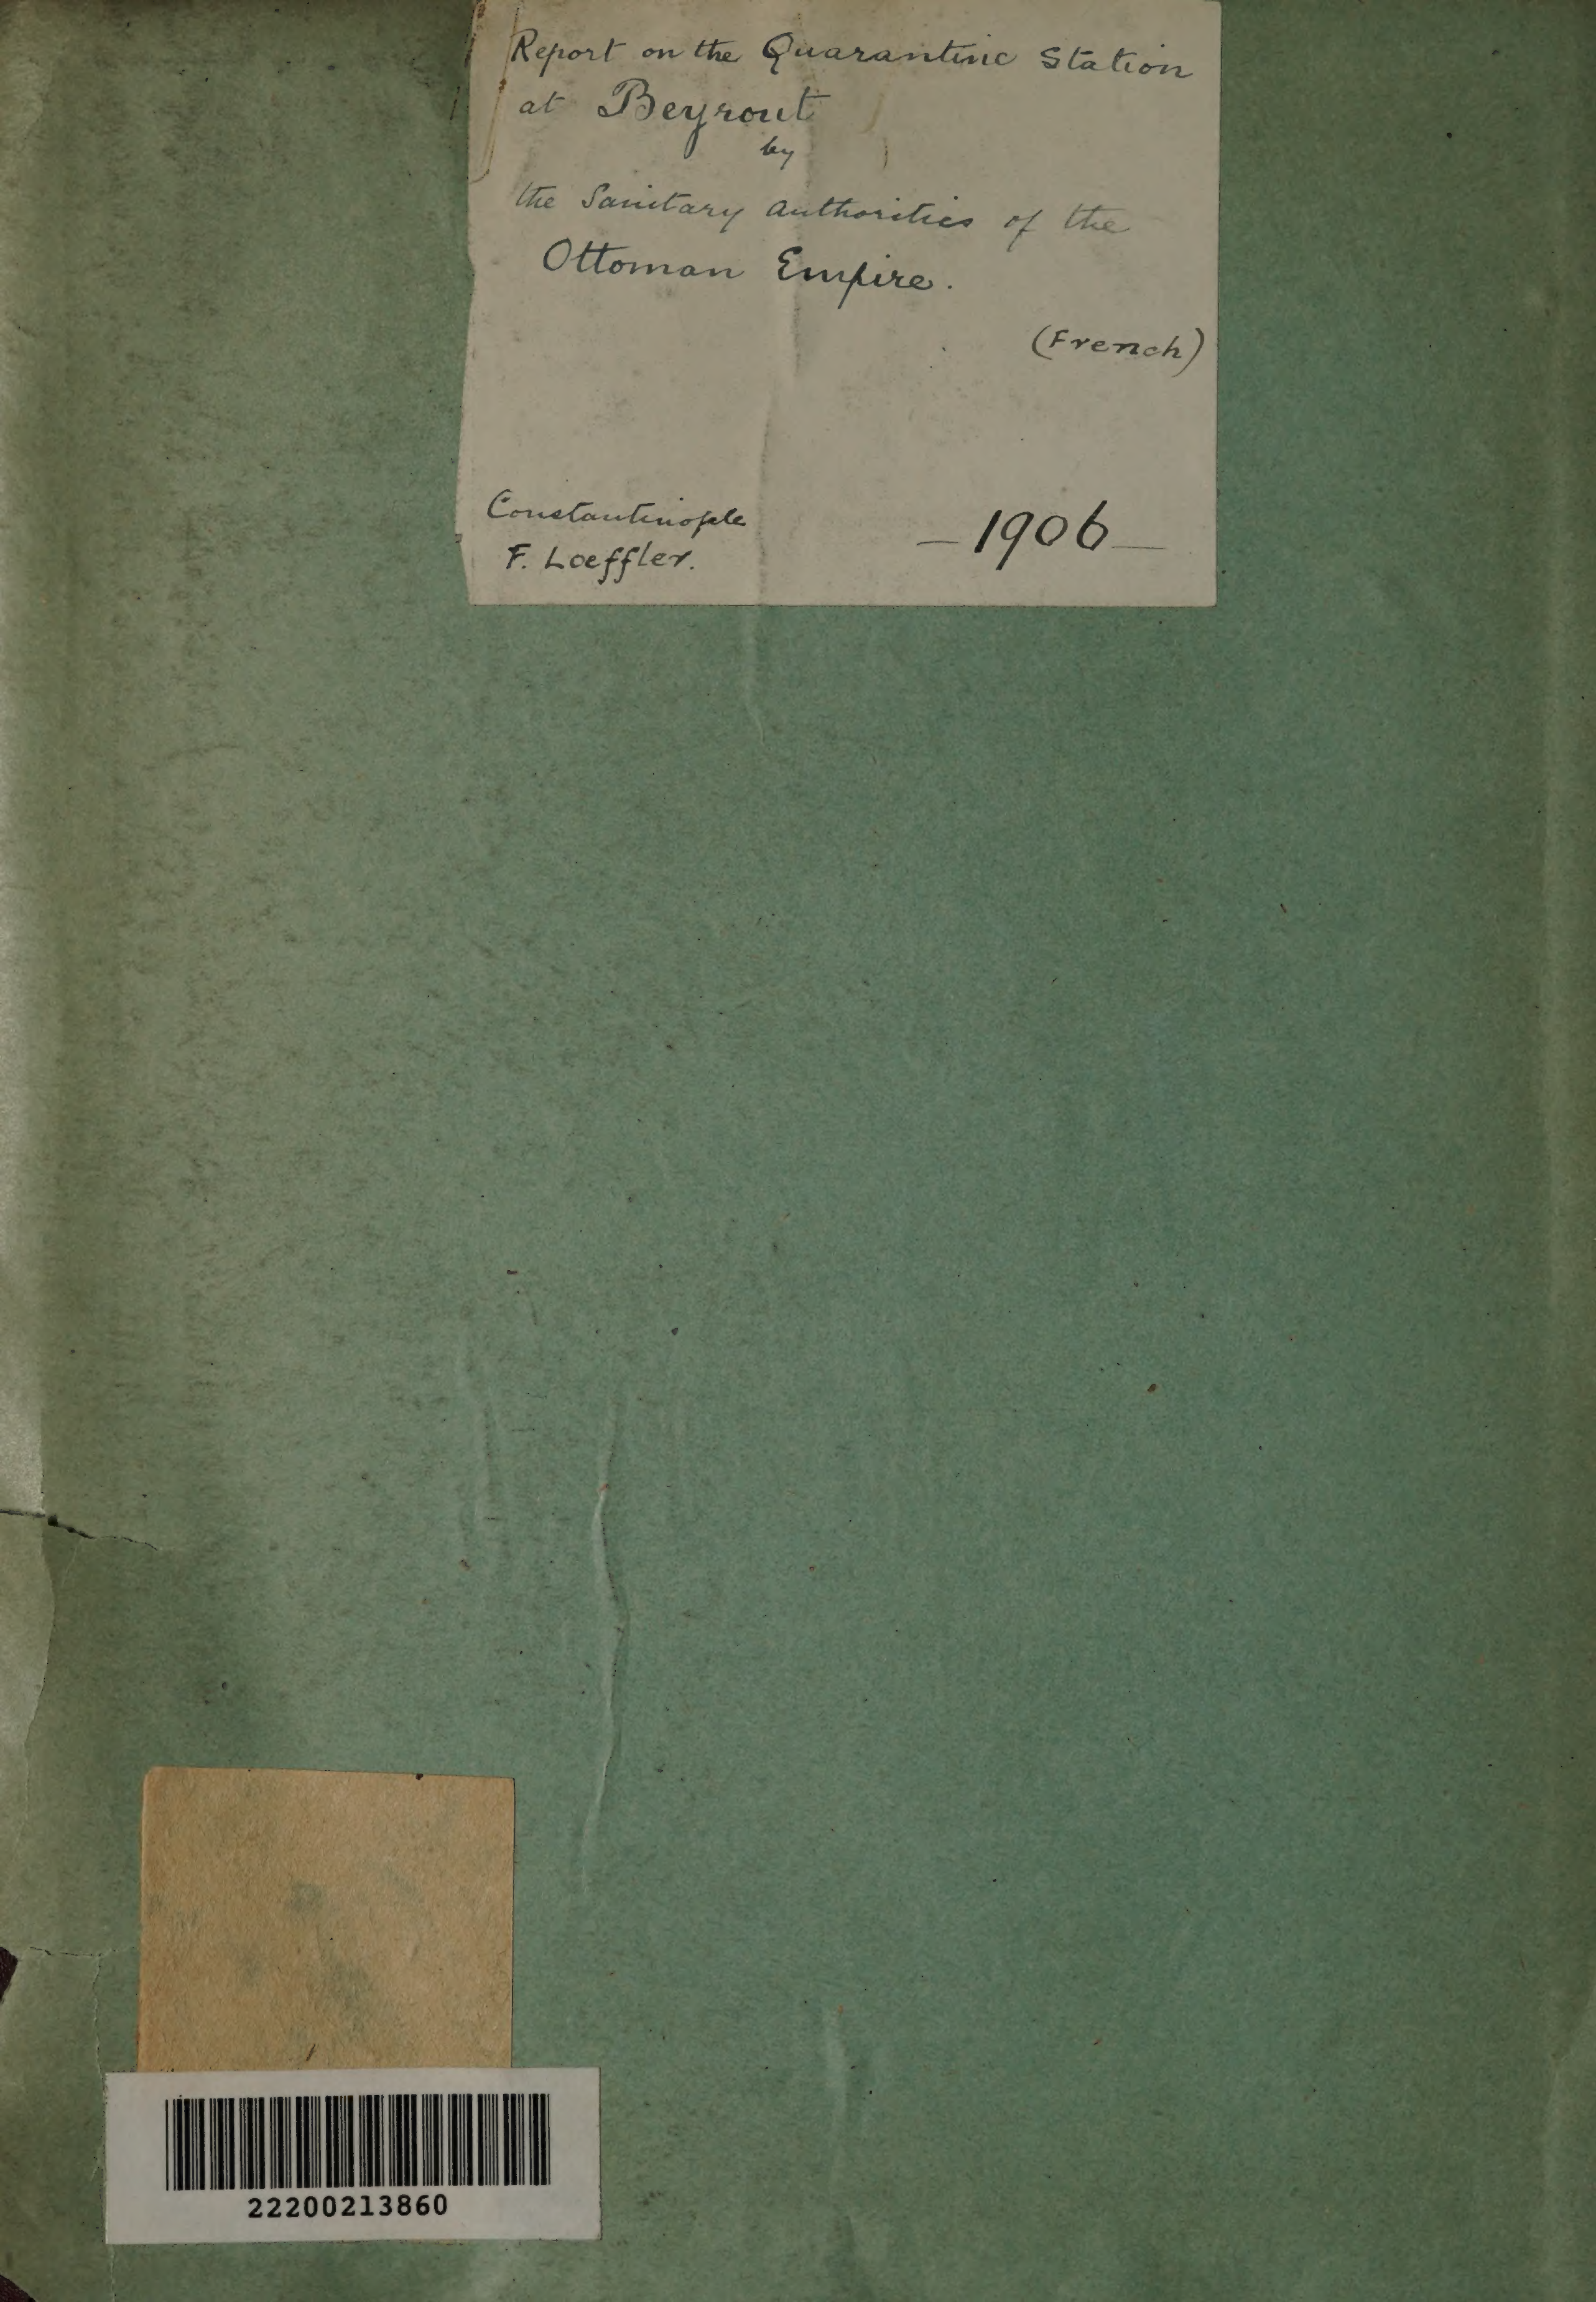 Report on the Quarantine Station
at Beyrout
by
the Sanitary authorities of the
Ottoman Empire.
(French)
Constantinople
F. Loeffler.
-1906-
22200213860